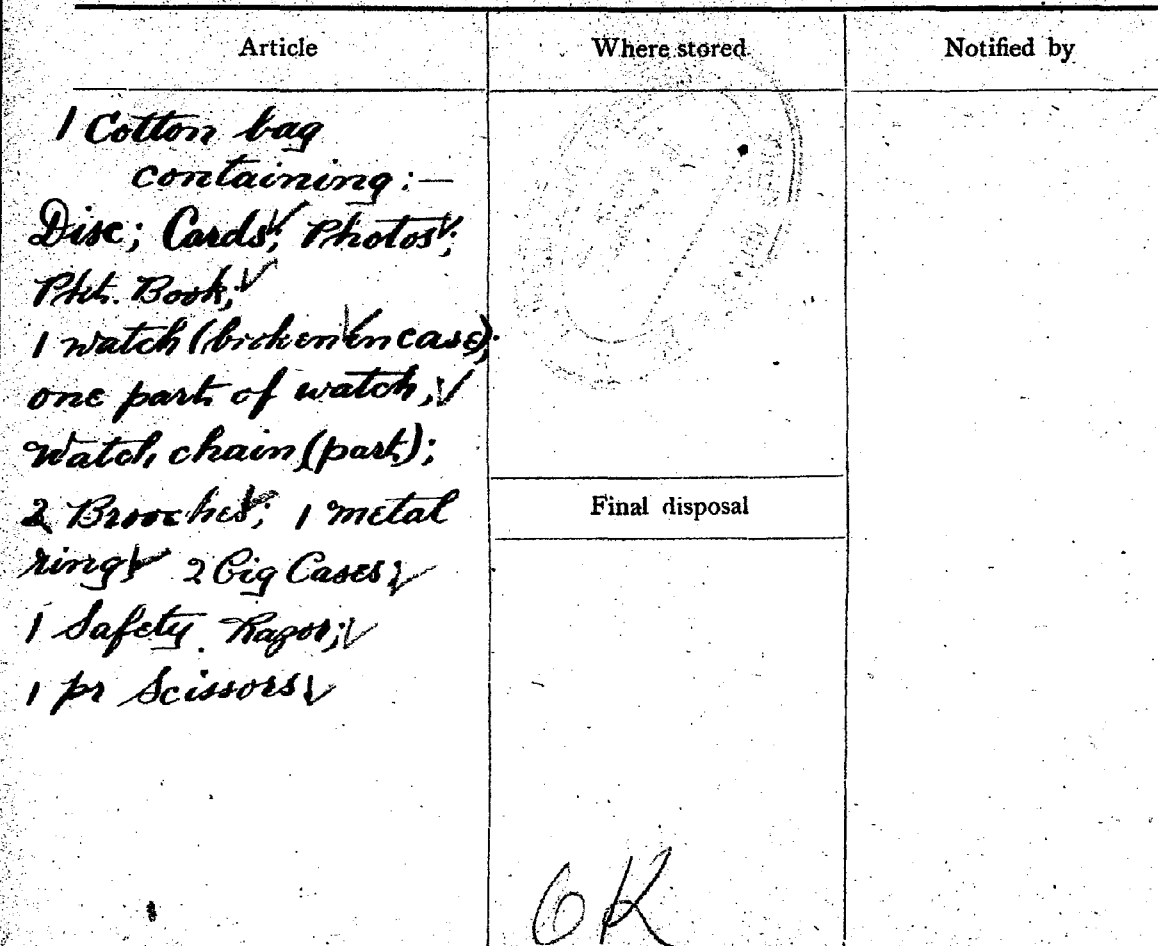 Article Where stored Notified by
1 Cotton bag
containing:—
Disc; Cards; Photos;
Pkt. Book;
1 watch (broken in case);
one part of watch;
Watch chain (part);
2 Brooches; 1 metal
ring; 2 Cig Cases;
1 Safety Razor;
1 pr Scissors;
Final disposal
OK